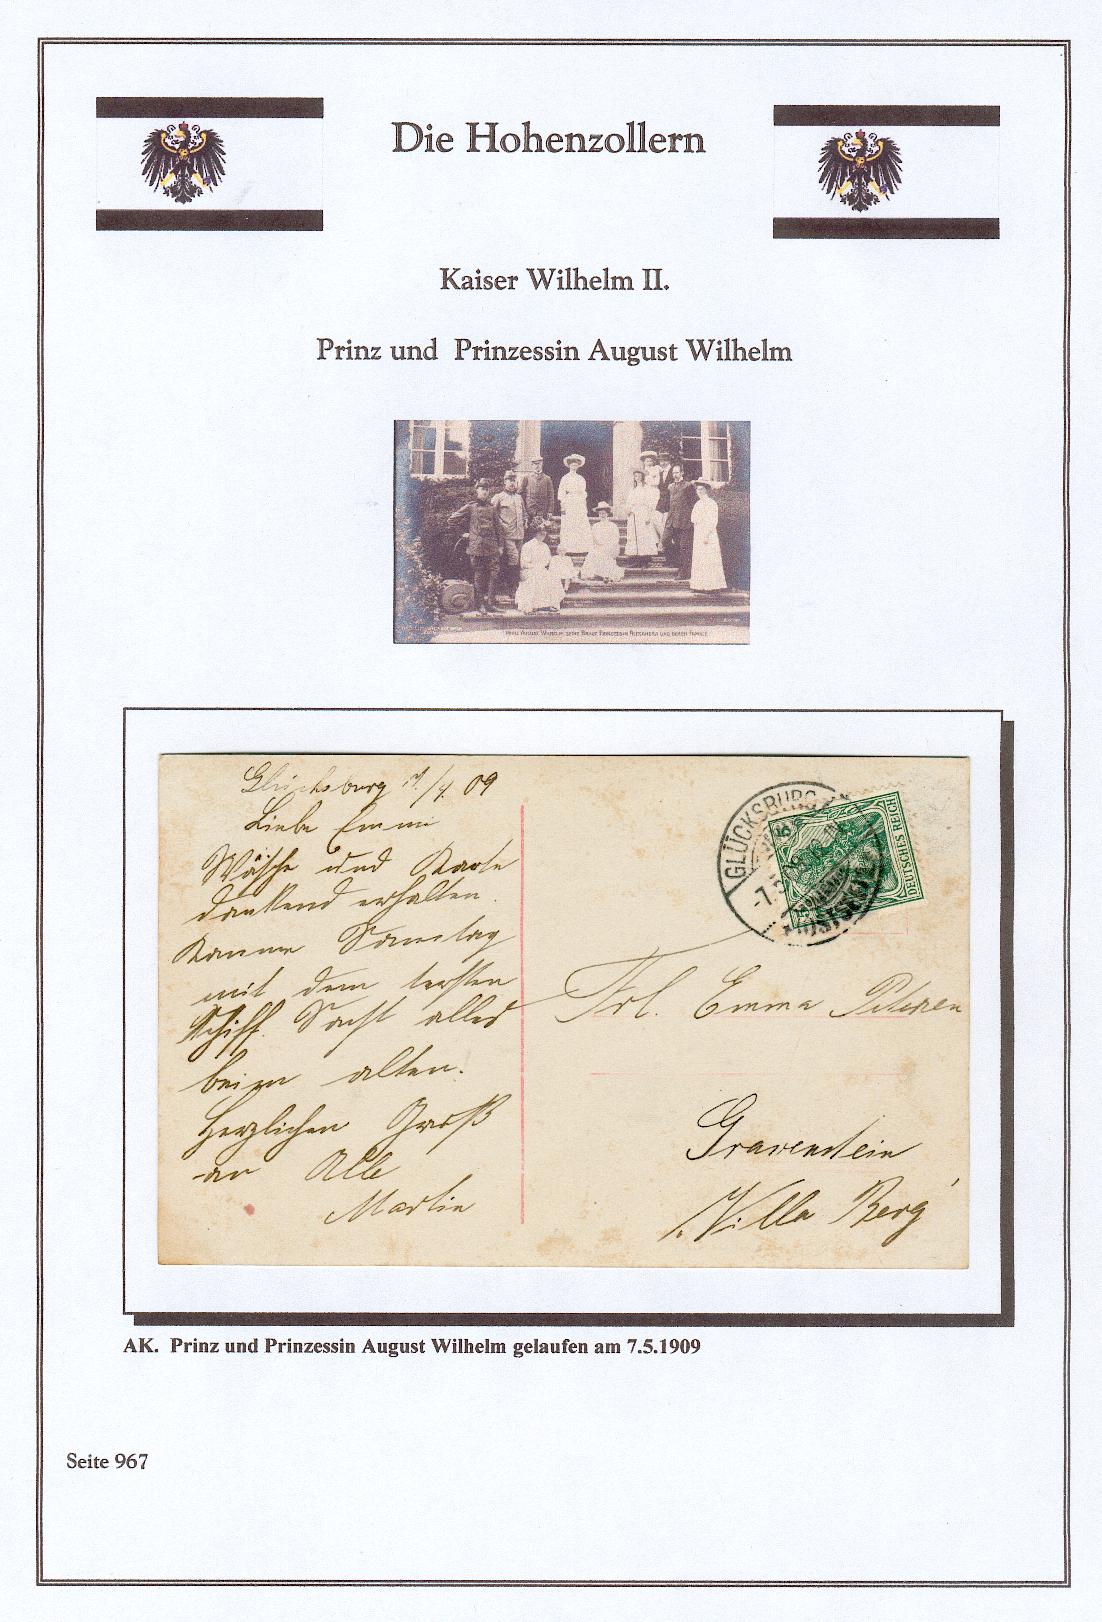 Die Hohenzollern
Kaiser Wilhelm II.
Prinz und Prinzessin August Wilhelm
PRINZ AUGUST WILHELM, SEINE BRAUT PRINZESSIN ALEXANDRA UND DEREN FAMILIE
Glücksburg /09
Liebe Emmi
Wäsche und Karte
dankend erhalten.
Komme Samstag
mit dem ersten
Schiff. Sonst alles
beim alten.
Herzlichen Gruß
an Alle
Martin
GLÜCKSBURG
(OSTSEE)
DEUTSCHES REICH
Frl. Emma Petersen
Gravenstein
Villa Berg
AK. Prinz und Prinzessin August Wilhelm gelaufen am 7.5.1909
Seite 967